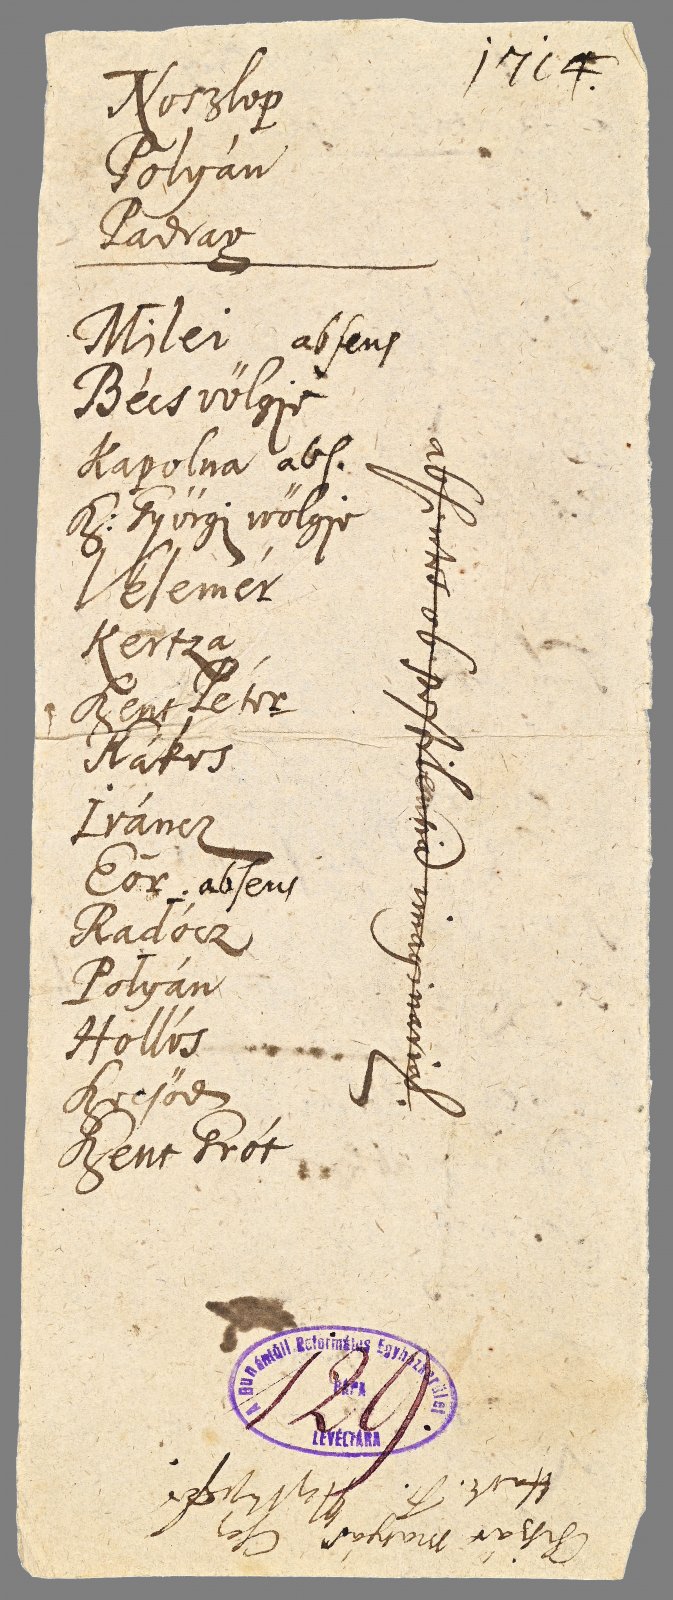 1714.
Noszlop
Polyán
Padrag
Milei absens
Bécs völgje
Kapolna abs.
Sz: Györgi völgje
Velemér
Kertza
Szent Péter
Hákos
Iváncz
Eör. absens
Radócz
Polyán
Hollós
Szecsöd
Szent Grót
absentes ob
A Dunántúli Református Egyházkerület
PÁPA
LEVÉLTÁRA
129